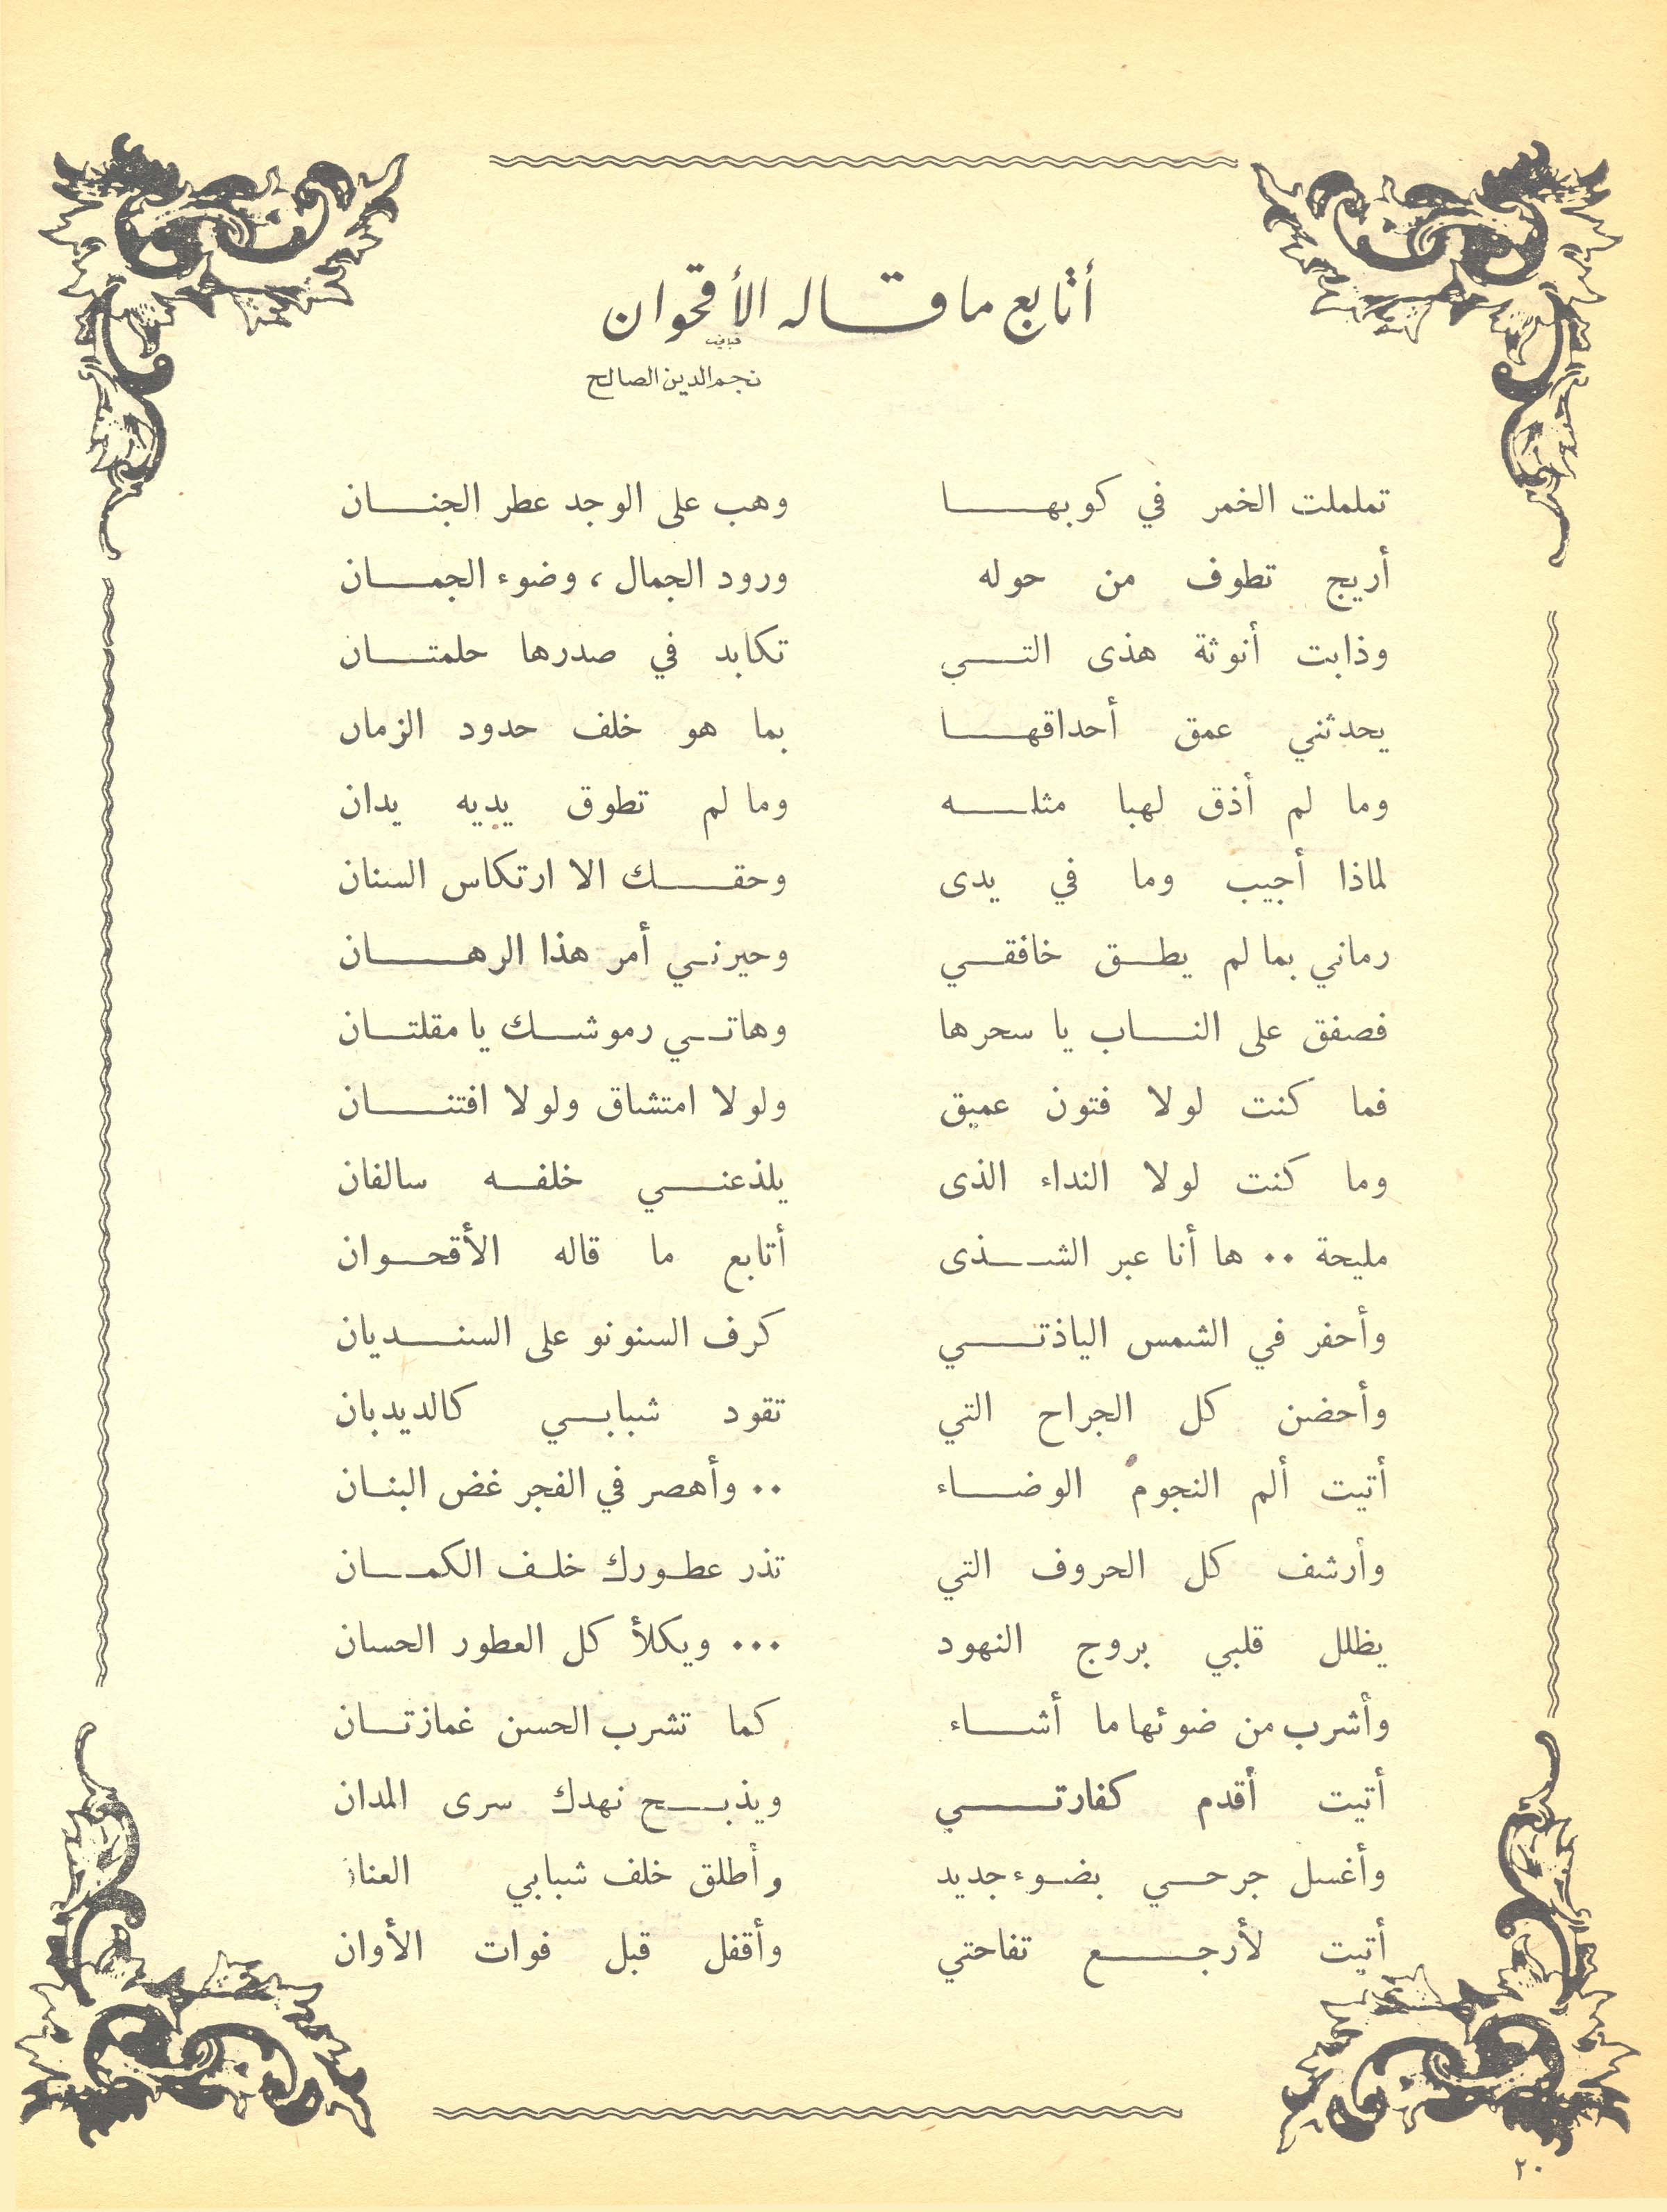 أتابع ما قاله الأقحوان
نجم الدين الصالح
تململت الخمر في كوبهـــا وهب على الوجد عطر الجنـــان
أريج تطوف من حوله ورود الجمال ، وضوء الجمـــان
وذابت أنوثة هذى التـــي تكابد في صدرها حلمتـــان
يحدثني عمق أحداقهـــا بما هو خلف حدود الزمان
وما لم أذق لهبا مثلـــه وما لم تطوق يديه يدان
لماذا أجيب وما في يدى وحقـــك الا ارتكاس السنان
رماني بما لم يطـق خافقـي وحيرنـي أمر هذا الرهـــان
فصفق على النـــاب يا سحرها وهاتـي رموشـك يا مقلتـان
فما كنت لولا فتون عميق ولولا امتشاق ولولا افتنـــان
وما كنت لولا النداء الذى يلذعنـــي خلفـه سالفان
مليحة ٠٠ ها أنا عبر الشـــذى أتابع ما قاله الأقحـوان
وأحفر في الشمس الياذتـــي كرف السنونو على السنـــديان
وأحضن كل الجراح التي تقود شبابـي كالديدبان
أتيت ألم النجوم الوضـــاء ٠٠ وأهصر في الفجر غض البنـان
وأرشف كل الحروف التي تذر عطـورك خلـف الكمـــان
يظلل قلبي بروج النهود ٠٠٠ ويكلأ كل العطور الحسان
وأشرب من ضوئها ما أشـــاء كما تشرب الحسن غمازتـان
أتيت أقدم كفارتـــي ويذبـــح نهدك سرى المدان
وأغسل جرحـي بضـوء جديد وأطلق خلف شبابي العنان
أتيت لأرجـــع تفاحتي وأقفل قبل فوات الأوان
٢٠